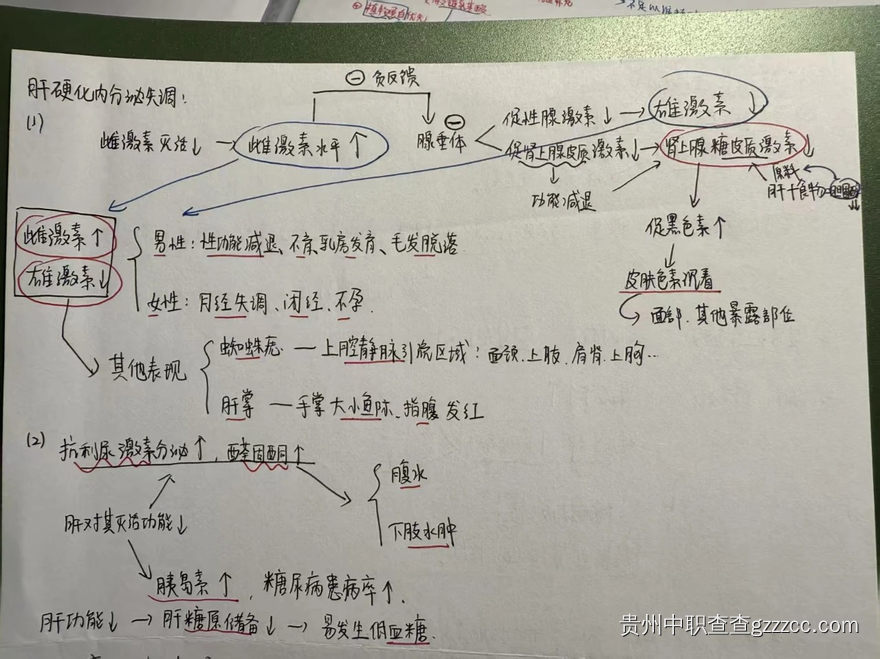 肝硬化内分泌失调:
(1)
⊖ 负反馈
雌激素灭活↓ → 雌激素水平↑
腺垂体 ⊖
促性腺激素↓ → 雄激素↓
促肾上腺皮质激素↓ → 肾上腺糖皮质激素↓
功能减退
原料
肝+食物
胆固醇↓
促黑色素↑
皮肤色素沉着
面部、其他暴露部位
雌激素↑
雄激素↓
男性: 性功能减退、不育、乳房发育、毛发脱落
女性: 月经失调、闭经、不孕.
其他表现
蜘蛛痣 — 上腔静脉引流区域: 面颈、上肢、肩背、上胸…
肝掌 — 手掌大小鱼际、指腹发红
(2) 抗利尿激素分泌↑, 醛固酮↑
腹水
下肢水肿
肝对其灭活功能↓
胰岛素↑, 糖尿病患病率↑.
肝功能↓ → 肝糖原储备↓ → 易发生低血糖.
贵州中职查查gzzzcc.com